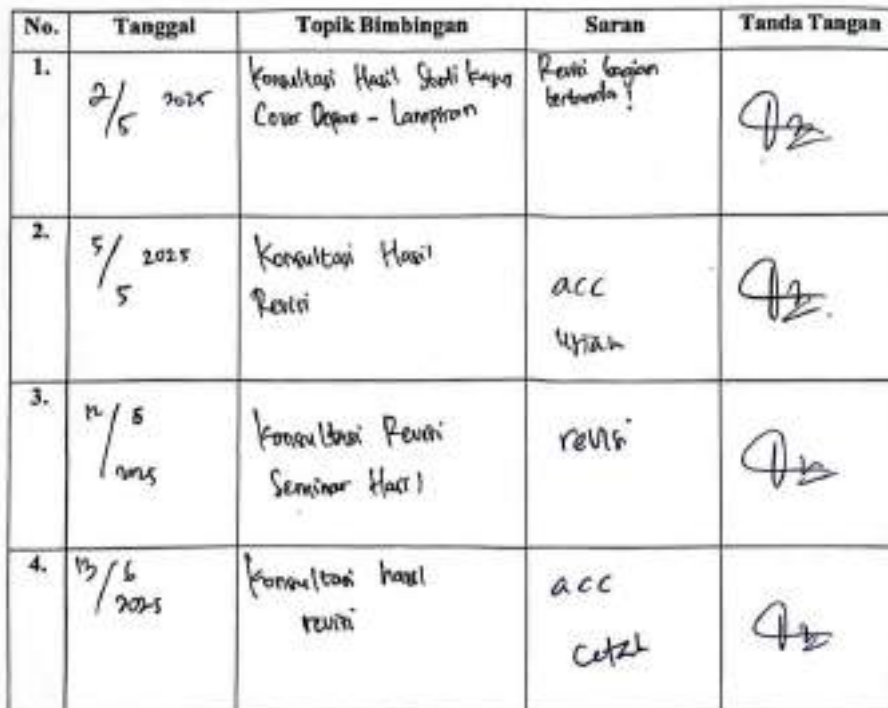 No. Tanggal Topik Bimbingan Saran Tanda Tangan
1. 2/5 2025 Konsultasi Hasil Studi Kasus Revisi bagian
Cover Depan - Lampiran bertanda!
2. 5/5 2025 Konsultasi Hasil
Revisi
acc
Ujian
3. 12/
2025 Konsultasi Revisi revisi
Seminar Hasil
4. 13/6
2025 Konsultasi hasil acc
revisi
Cetak